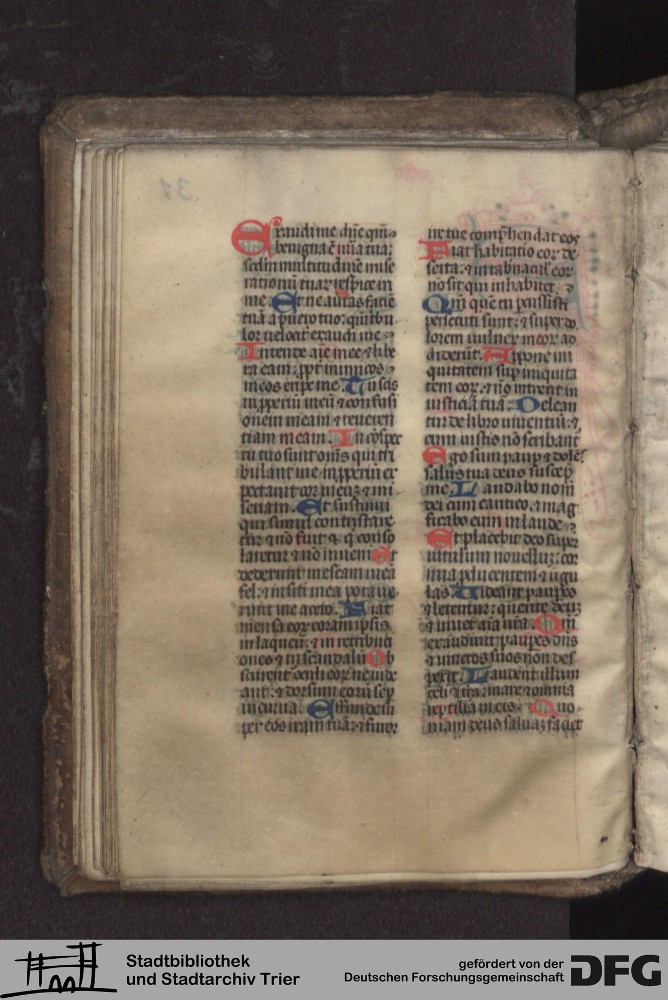 Exaudi me dñe qm̃
benigna ẽ mĩa tua:
scdm multitudinẽ mise
rationũ tuar respice in
me. Et ne auertas faciẽ
tuã a puero tuo: qm̃ tribu
lor velocit exaudi me.
Intende aĩe mee & libe
ra eam: ppt inimicos
meos eripe me. Tu scis
inpperiũ meũ & confusi
onem meam & reueren
tiam meam. In cõspec
tu tuo sunt om̃s qui tri
bulant me inpperiũ ex
pectauit cor meuz & mi
seriam. Et sustinui
qui simul contristare
tur & nõ fuit & q conso
laretur & nõ inueni. Et
dederunt in escam mea
fel: & in siti mea potaue
runt me aceto. Fiat
mensa eor coram ipsis
in laqueũ: & in retributi
ones & in scandalũ Ob
scurent oculi eor ne vide
ant: & dorsum eorũ sep
incurua. Effunde su
per eos iram tuã: & furor
ire tue comp̃hendat eos
Fiat habitatio eor de
serta: & in tabnacul eor
no sit qui inhabitet.
Qm̃ quem tu pcussisti
persecuti sunt: & super do
lorem vulner meor ad
diderũt. Appone ini
quitatem sup iniquita
tem eor: & nõ intrent in
iusticiã tuã. Delean
tur de libro viuentiũ: &
cum iustis nõ scribant
Ego sum paup & dolẽs
salus tua deus suscep
me. Laudabo nom
dei cum cantico: & mag
ficabo eum in laude
Et placebit deo super
vitulum nouelluz: cor
nua pducentem & ungu
las. Videant paupes
& letentur: querite deuz
& viuet aĩa vr̃a. Qm̃
exaudiuit paupes dñs
& vinctos suos non des
pexit. Laudent illum
celi & tr̃a: mare & omnia
reptilia in eis. Quo
niam deus saluaz faciet
Stadtbibliothek
und Stadtarchiv Trier
gefördert von der
Deutschen Forschungsgemeinschaft
DFG